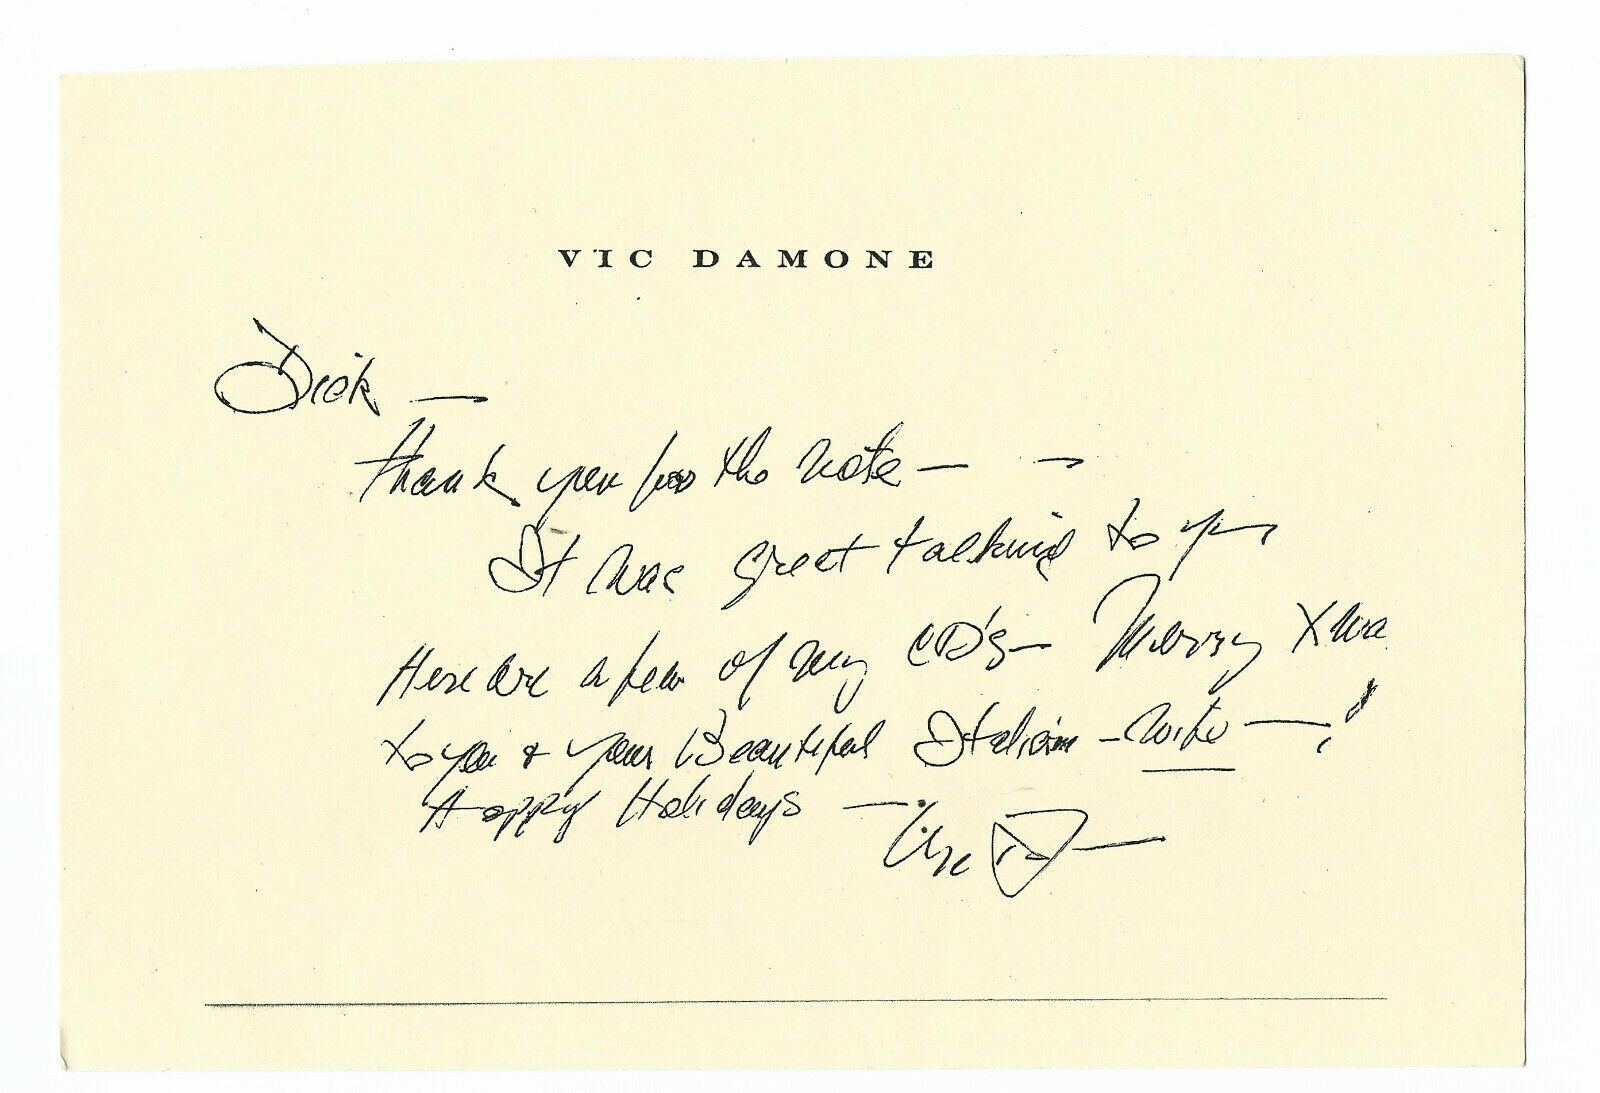 VIC DAMONE
Dick —
Thank you for the Note — —
It was great talking to you
Here are a few of my CD's — Merry Xmas
to you & your Beautiful Italian - wife — !
Happy Holidays —
Vic D